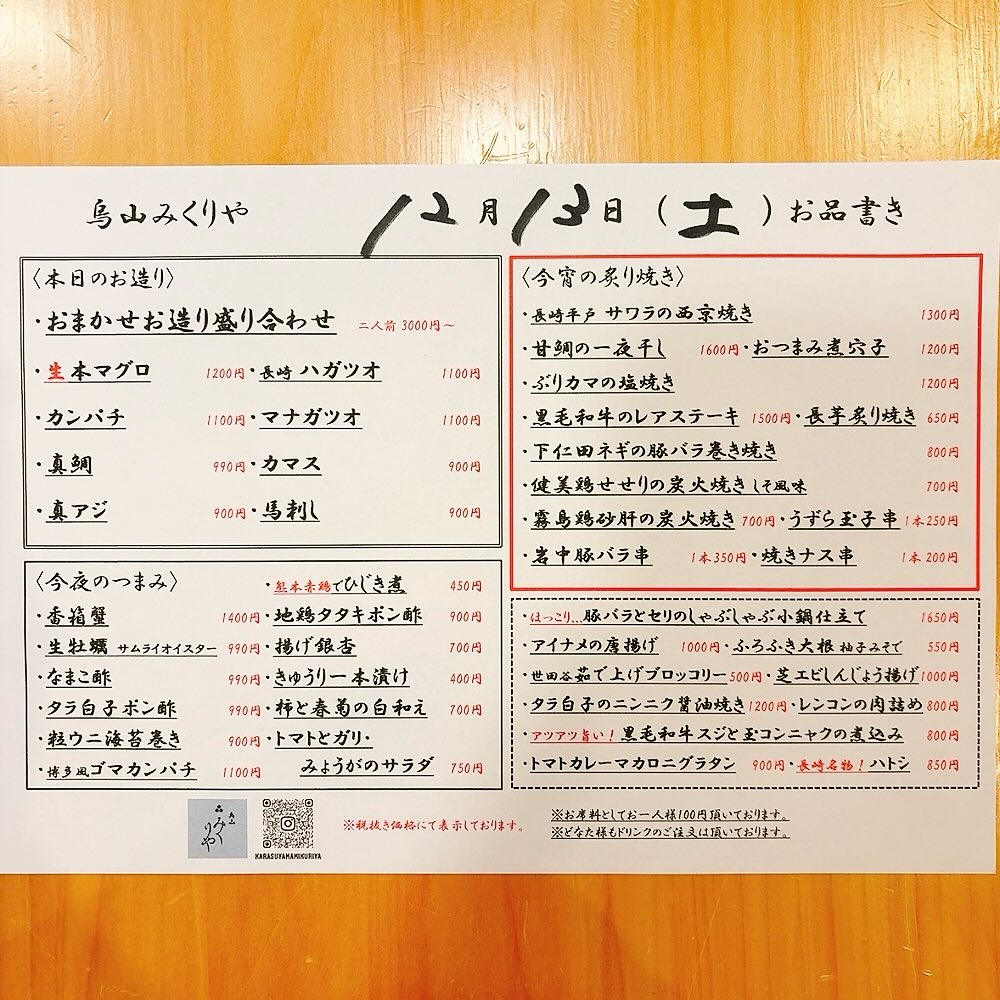 烏山みくりや 12月13日(土)お品書き
〈本日のお造り〉
・おまかせお造り盛り合わせ 二人前 3000円～
・生本マグロ 1200円・長崎 ハガツオ 1100円
・カンパチ 1100円・マナガツオ 1100円
・真鯛 990円・カマス 900円
・真アジ 900円・馬刺し 900円
〈今夜のつまみ〉 ・熊本赤鶏でひじき煮 450円
・香箱蟹 1400円・地鶏タタキポン酢 900円
・生牡蠣 サムライオイスター 990円・揚げ銀杏 700円
・なまこ酢 990円・きゅうり一本漬け 400円
・タラ白子ポン酢 990円・柿と春菊の白和え 700円
・粒ウニ海苔巻き 900円・トマトとガリ・
・博多風ゴマカンパチ 1100円 みょうがのサラダ 750円
〈今宵の炙り焼き〉
・長崎平戸 サワラの西京焼き 1300円
・甘鯛の一夜干し 1600円・おつまみ煮穴子 1200円
・ぶりカマの塩焼き 1200円
・黒毛和牛のレアステーキ 1500円・長芋炙り焼き 650円
・下仁田ネギの豚バラ巻き焼き 800円
・健美鶏せせりの炭火焼き しそ風味 700円
・霧島鶏砂肝の炭火焼き 700円・うずら玉子串 1本250円
・岩中豚バラ串 1本350円・焼きナス串 1本200円
・ほっこり…豚バラとセリのしゃぶしゃぶ小鍋仕立て 1650円
・アイナメの唐揚げ 1000円・ふろふき大根 柚子みそで 550円
・世田谷茹で上げブロッコリー 500円・芝エビしんじょう揚げ 1000円
・タラ白子のニンニク醤油焼き 1200円・レンコンの肉詰め 800円
・アツアツ旨い!黒毛和牛スジと玉コンニャクの煮込み 800円
・トマトカレーマカロニグラタン 900円・長崎名物!ハトシ 850円
烏山みくりや
KARASUYAMAMIKURIYA
※税抜き価格にて表示しております。
※お席料としてお一人様100円頂いております。
※どなた様もドリンクのご注文は頂いております。